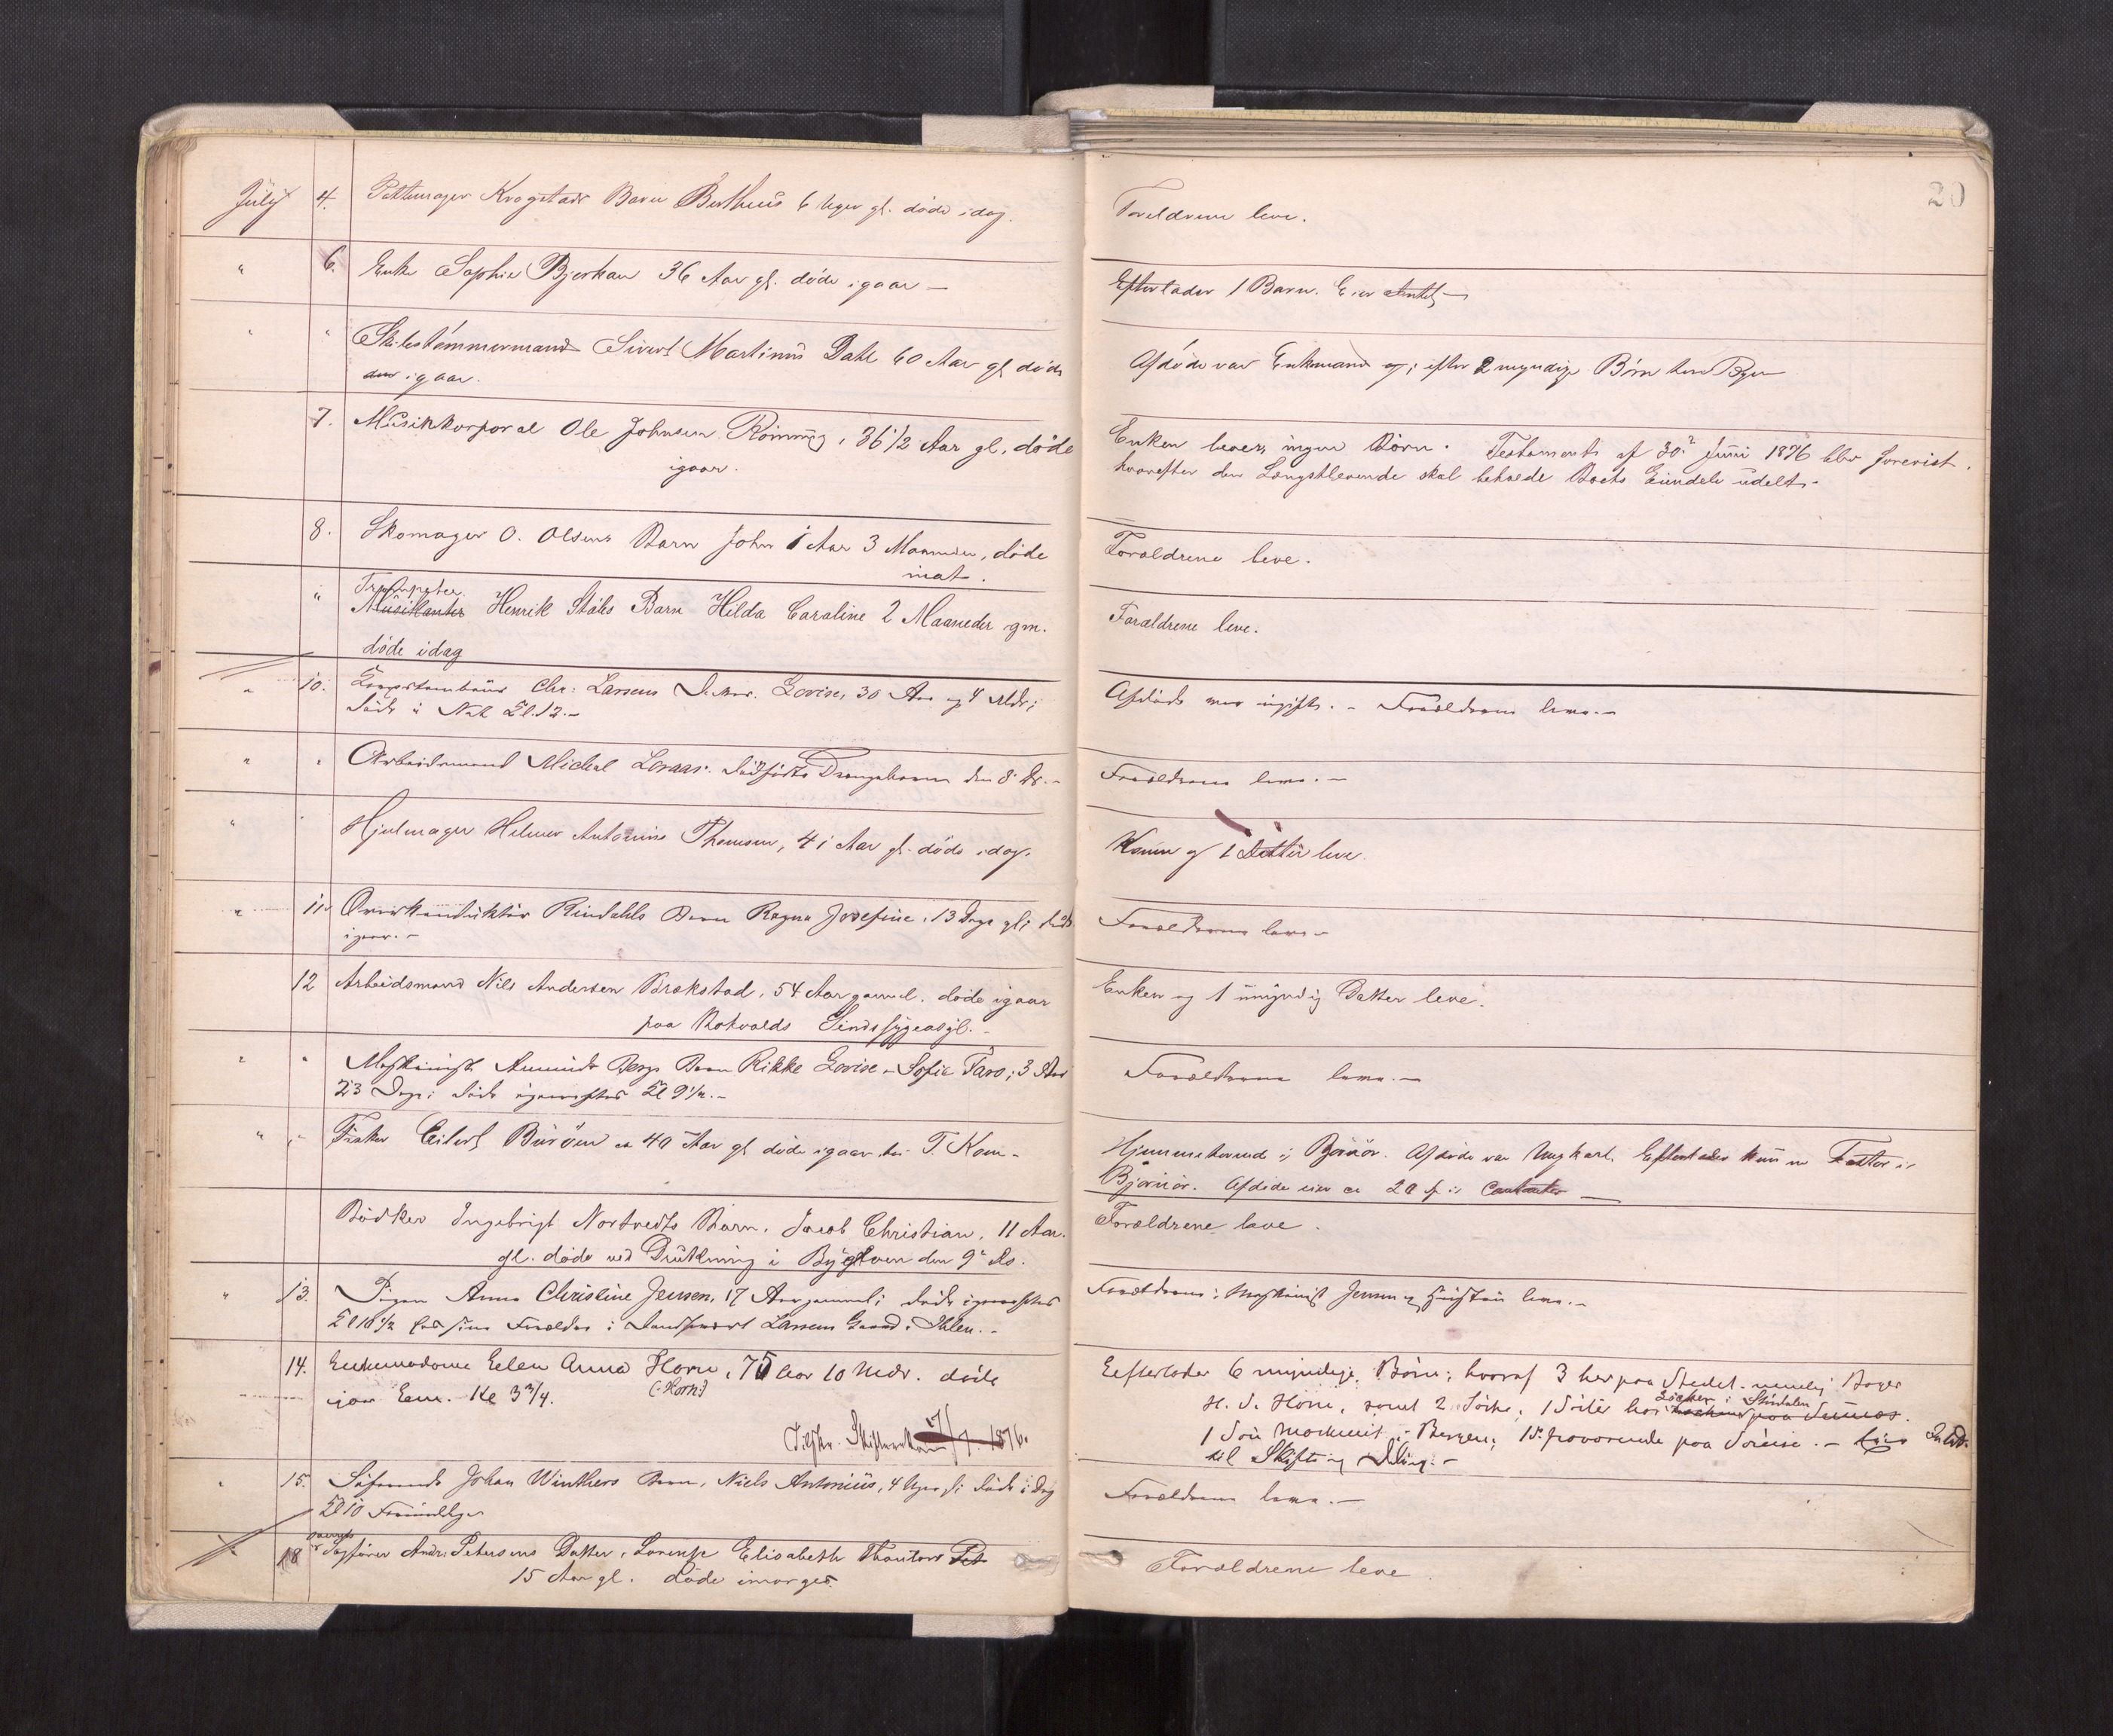 20
July 4. Pottemager Krogstads Barn Bertheus 6 Uger gl. døde idag.
Forældrene leve.
" 6. Enke Sophie Bjerkan 36 Aar gl. døde igaar —
Efterlader 1 Barn. Eier
" " Skibstømmermand Sivert Martinus Dahl 60 Aar gl døde
igaar.
Afdøde var Enkemand og efter 2 myndige Børn her i Byen
7. Musikkorporal Ole Johnsen Rönning, 36 1/2 Aar gl. døde
igaar.
Enken lever, ingen Børn. Testamente af 30. Juni 1876 blev forevist,
hvorefter den Længstlevende skal beholde Boets Eiendele udelt.
8. Skomager O. Olsens Barn John 1 Aar 3 Maaneder, døde
inat.
Forældrene leve.
Trompeter
" Musikanter Henrik Ståhs Barn Hilda Caroline 2 Maaneder gm.
døde idag
Forældrene leve.
" 10. Chr. Larsens Lovise, 30 Aar og 4 Mdr;
døde i Nat Kl. 12.-
Afdøde var ugift. - Forældrene leve.-
" " Arbeidsmand Michal Loraas. dødfødte Drengebarn den 8. ds.-
Forældrene leve. -
" " Hjulmager Hilmer Antonius Thomsen, 41 Aar gl. døde idag.
Konen og 1 Datter leve.
" 11. Overkonduktør Rindahls Barn Ragna Josefine, 13 Dage gl; døde
igaar.-
Forældrene leve -
12 Arbeidsmand Nils Andersen Brækstad, 54 Aar gammel. døde igaar
paa Rotvolds Sindssygeasyl. -
Enken og 1 umyndig Datter leve.
" " Maskinist Amundt Bergs Barn Rikke Lovise Sofie, 3 Aar
23 Dage; døde igaaraftes Kl 9 1/2.-
Forældrene leve. -
" " Fisker Eilert Buröen ca 40 Aar gl døde igaar T. Kom -
Hjemmehørende i Björnör. Afdøde var Ungkarl. Efterlader kun en Faster i
Björnör. Afdøde eier ca 20 i Contanter —
Bødker Ingebrigt Nortvedts Barn, Jacob Christian, 11 Aar
gl. døde ved Drukning i Byelven den 9. ds.
Forældrene leve.
" 13. Pigen Anna Christine Jensen, 17 Aar gammel; døde igaaraftes
Kl 10 1/2 hos sine Forældre i Larsens Gaard i Ihlen. -
Forældrene: Maskinist Jensen og Hustru leve. -
14. Enkemadame Ellen Anna Horn, 75 Aar 10 Mdr. døde
igaar Em. Kl 3 3/4. (Horn)
Efterlader 6 myndige Børn; hvoraf 3 her paa Stedet. nemlig Bager
H. S. Horn, samt 2 Døtre; 1 Datter hos i Stördalen
1 Søn Maskinist i Bergen; 1 S. fraværende paa Søreise. -
til Skifte og Deling. -
Tilskr. Skifteretten 17/7 1876.
" 15. Sømand Johan Winthers Barn, Niels Antonius, 4 Uger gl; døde idag
Kl 10 Formiddag
Forældrene leve. -
" 18 Sagfører Andr. Petersens Datter, Lorentze Elisabeth
15 Aar gl. døde imorges.
Forældrene leve.